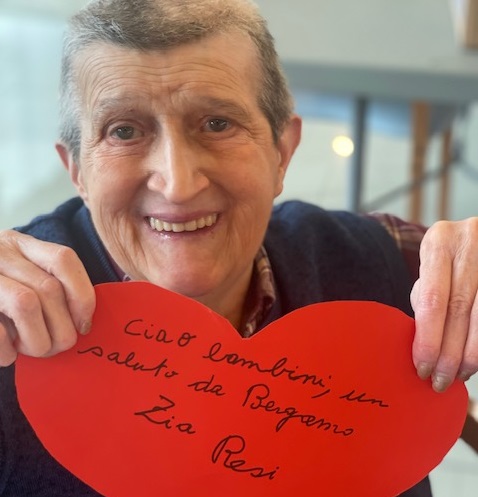 Ciao bambini, un
saluto da Bergamo
Zia Resi